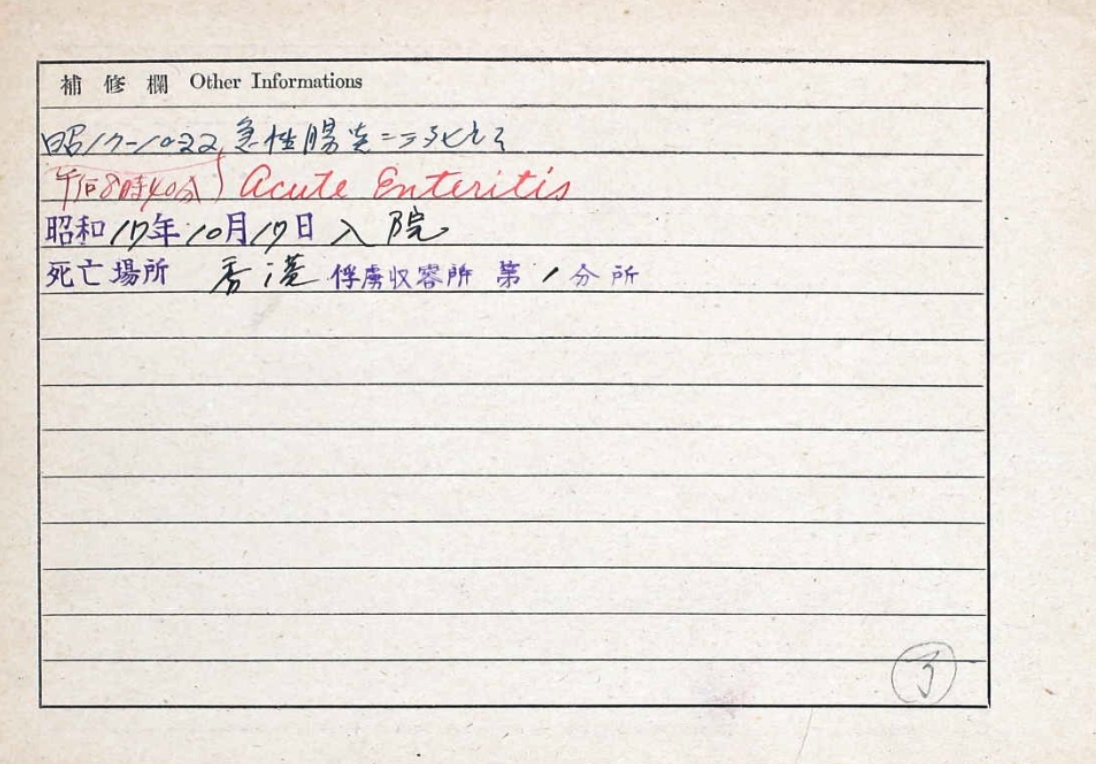 補修欄 Other Informations
昭17-10-22 急性腸炎ニテ死亡
午后8時40分) Acute Enteritis
昭和17年10月17日入院
死亡場所 香港俘虜収容所 第1分所
了